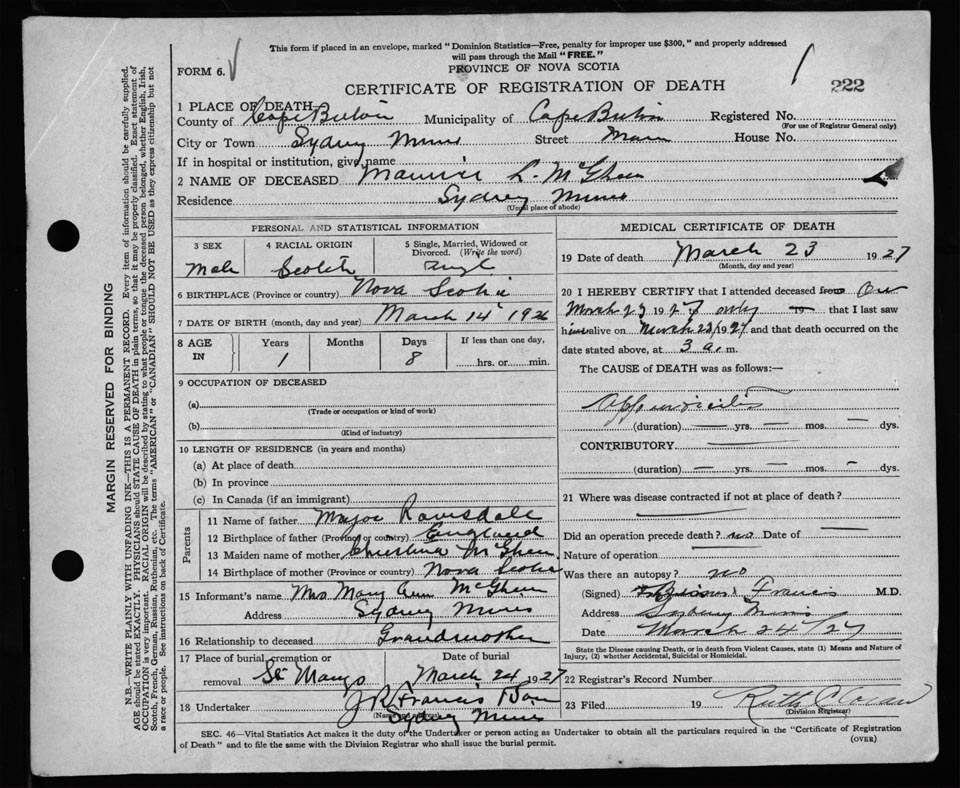 This form if placed in an envelope, marked "Dominion Statistics—Free, penalty for improper use $300," and properly addressed
will pass through the Mail "FREE."
FORM 6.
PROVINCE OF NOVA SCOTIA
CERTIFICATE OF REGISTRATION OF DEATH
222
1 PLACE OF DEATH
County of Cape Breton Municipality of Cape Breton Registered No.
(For use of Registrar General only)
City or Town Sydney Mines Street Main House No.
If in hospital or institution, give name
2 NAME OF DECEASED Maurice L. McGhee
Residence Sydney Mines
(Usual place of abode)
MARGIN RESERVED FOR BINDING
N.B.—WRITE PLAINLY WITH UNFADING INK—THIS IS A PERMANENT RECORD. Every item of information should be carefully supplied.
AGE should be stated EXACTLY. PHYSICIANS should STATE CAUSE OF DEATH in plain terms, so that it may be properly classified. Exact statement of
OCCUPATION is very important. RACIAL ORIGIN will be described by stating to what people or tongue the deceased person belonged, whether English, Irish,
Scotch, French, German, Russian, Ruthenian, etc. The terms "AMERICAN" or "CANADIAN" SHOULD NOT BE USED as they express citizenship but not
a race or people. See instructions on back of Certificate.
PERSONAL AND STATISTICAL INFORMATION
3 SEX
4 RACIAL ORIGIN
5 Single, Married, Widowed or
Divorced. (Write the word)
Male Scotch Single
6 BIRTHPLACE (Province or country) Nova Scotia
7 DATE OF BIRTH (month, day and year) March 14 1926
8 AGE IN
Years Months Days If less than one day,
1 8 hrs. or min.
9 OCCUPATION OF DECEASED
(a)
(Trade or occupation or kind of work)
(b)
(Kind of industry)
10 LENGTH OF RESIDENCE (in years and months)
(a) At place of death
(b) In province
(c) In Canada (if an immigrant)
Parents
11 Name of father Major Ramsdale
12 Birthplace of father (Province or country) England
13 Maiden name of mother Christina McGhee
14 Birthplace of mother (Province or country) Nova Scotia
15 Informant's name Mrs Mary Ann McGhee
Address Sydney Mines
16 Relationship to deceased Grandmother
17 Place of burial, cremation or Date of burial
removal St Marys March 24 1927
18 Undertaker J R Francis
Sydney Mines
MEDICAL CERTIFICATE OF DEATH
19 Date of death March 23 1927
(Month, day and year)
20 I HEREBY CERTIFY that I attended deceased from On
March 23 1927 only to that I last saw
him alive on March 23/1927 and that death occurred on
date stated above, at 3 a.m.
The CAUSE of DEATH was as follows:—
Appendicitis
(duration) yrs. mos. dys.
CONTRIBUTORY
(duration) yrs. mos. dys.
21 Where was disease contracted if not at place of death?
Did an operation precede death? no Date of
Nature of operation
Was there an autopsy? no
(Signed) Francis M.D.
Address Sydney Mines
Date March 24/27
State the Disease causing Death, or in death from Violent Causes, state (1) Means and Nature of
Injury, (2) whether Accidental, Suicidal or Homicidal.
22 Registrar's Record Number
23 Filed 19 Ruth
(Division Registrar)
SEC. 46—Vital Statistics Act makes it the duty of the Undertaker or person acting as Undertaker to obtain all the particulars required in the "Certificate of Registration
of Death" and to file the same with the Division Registrar who shall issue the burial permit.
(OVER)